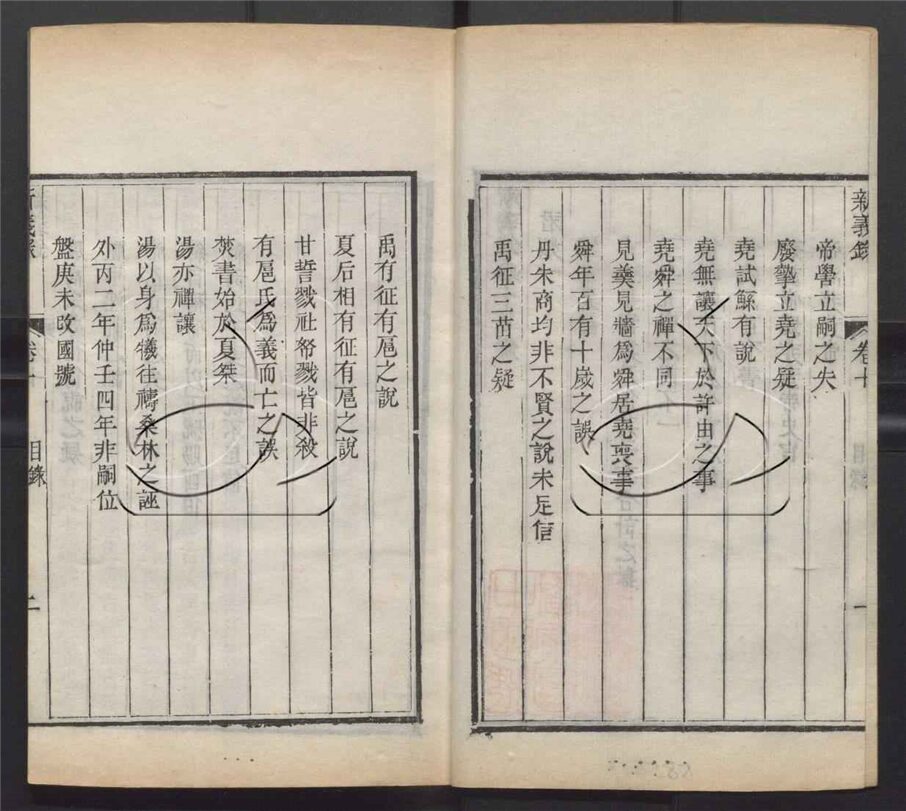 新義錄
卷十
目錄
一
帝嚳立嗣之失
廢摯立堯之疑
堯試鯀有說
堯無讓天下於許由之事
堯舜之禪不同
見羹見牆爲舜居堯喪事
舜年百有十歲之誤
丹朱商均非不賢之說未足信
禹征三苗之疑
禹有征有扈之說
夏后相有征有扈之說
甘誓戮社孥戮皆非殺
有扈氏爲義而亡之誤
焚書始於夏桀
湯亦禪讓
湯以身爲犧往禱桑林之誣
外丙二年仲壬四年非嗣位
盤庚未改國號
卷十
目錄
二